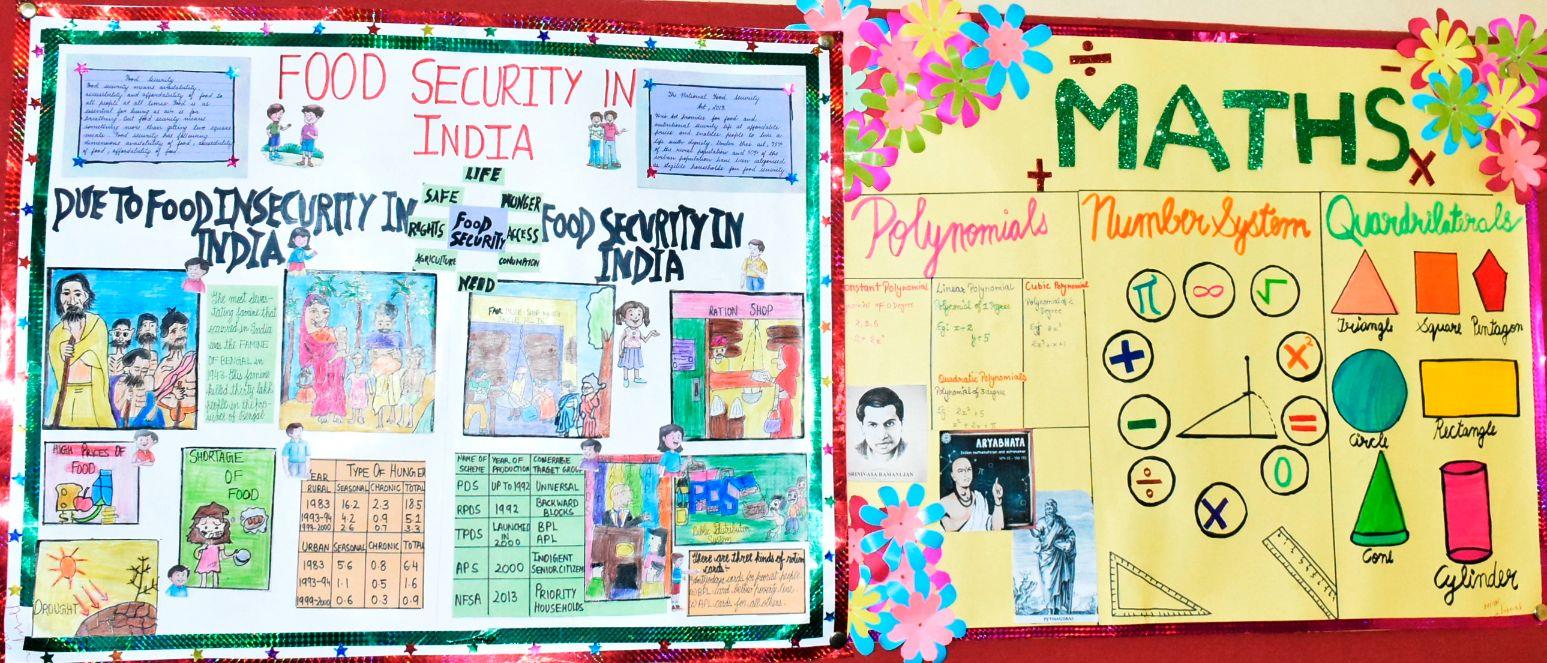 FOOD SECURITY IN
INDIA
Food Security
Food security means availability,
accessibility and affordability of food to
all people at all times. Food is as
essential for living as air is for
breathing. But food security means
something more than getting two square
meals. Food security has following
dimensions availability of food, accessibility
of food, affordability of food
The National Food Security
Act, 2013
This act provides for food and
nutritional security life at affordable
prices and enables people to live a
life with dignity. Under this act, 75%
of the rural population and 50% of the
urban population have been categorised
as eligible households for food security
DUE TO FOOD INSECURITY IN
INDIA
LIFE
SAFE
HUNGER
RIGHTS
FOOD
SECURITY
ACCESS
AGRICULTURE
NEED
FOOD SECURITY IN
INDIA
The most devas-
tating famine that
occurred in India
was the FAMINE
OF BENGAL in
1943. this famine
killed thirty lakh
people in the pro-
vince of Bengal
FAIR PRICE SHOP
RATION SHOP
HIGH PRICES OF
FOOD
SHORTAGE
OF
FOOD
DROUGHT
YEAR TYPE OF HUNGER
RURAL SEASONAL CHRONIC TOTAL
1983 16.2 2.3 18.5
1993-94 4.2 0.9 5.1
1999-2000 2.6 0.7 3.3
URBAN SEASONAL CHRONIC TOTAL
1983 5.6 0.8 6.4
1993-94 1.1 0.5 1.6
1999-2000 0.6 0.3 0.9
NAME OF SCHEME YEAR OF PRODUCTION TARGET GROUP
PDS UP TO 1992 UNIVERSAL
RPDS 1992 BACKWARD BLOCKS
TPDS LAUNCHED IN 2000 BPL APL
APS 2000 INDIGENT SENIOR CITIZEN
NFSA 2013 PRIORITY HOUSEHOLDS
PDS
Public Distribution
System
There are three kinds of ration
cards-
Antyodaya cards for poorest people.
BPL card below poverty line
APL cards for all others.
÷ -
MATHS
+ ×
Polynomials
Constant Polynomial
of 0 Degree
Linear Polynomial
Polynomial of 1 Degree
Eg: x+2
y+5
Cubic Polynomial
Polynomial of
Degree
Quadratic Polynomials
Polynomial of
Eg 2x²+5
SRINIVASA RAMANUJAN
ARYABHATA
Indian mathematician and astronomer
PYTHAGORAS
Number System
π ∞ √
+ x²
- =
÷ × 0
Quardrilaterals
Triangle Square Pentagon
Circle Rectangle
Cone Cylinder